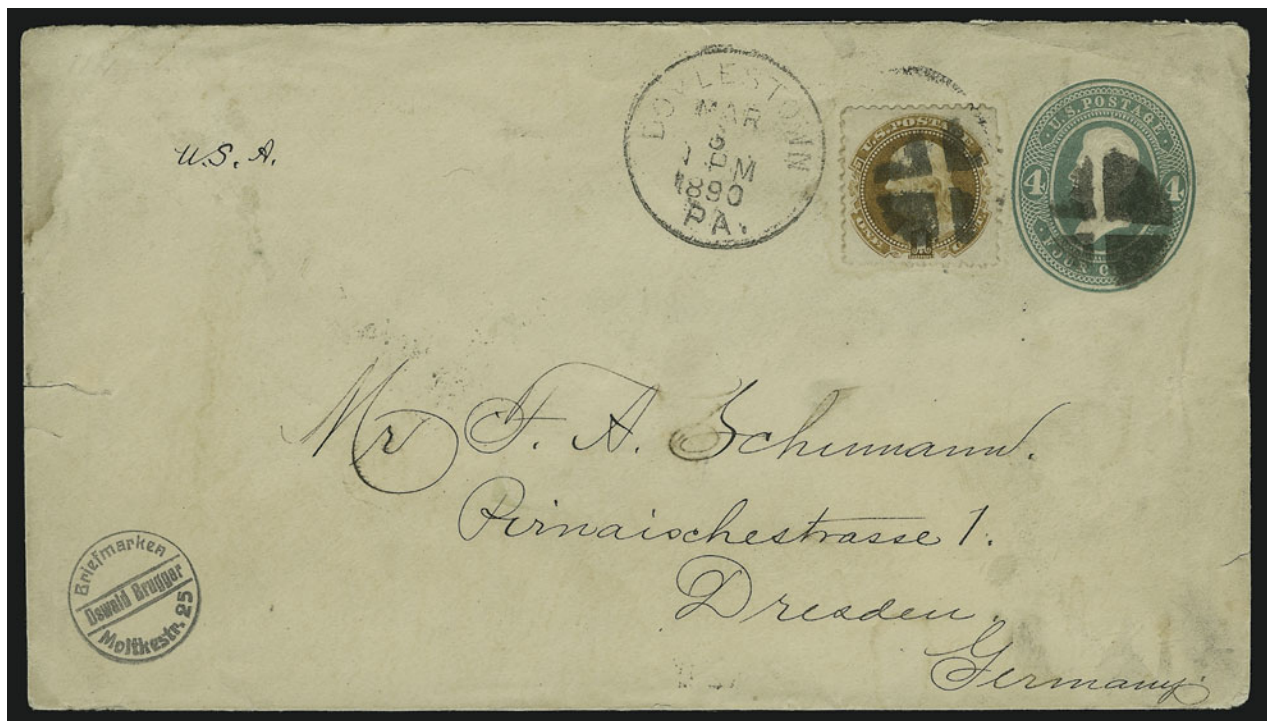 U.S.A.
DOYLESTOWN
MAR
1 PM
1890
PA.
U.S. POSTA
ONE
U.S. POSTAGE
4 4
FOUR C
Mr F. A. Schumann.
Pirnaischestrasse 1.
Dresden,
Germany.
Briefmarken
Oswald Brugger
Moltkestr. 25